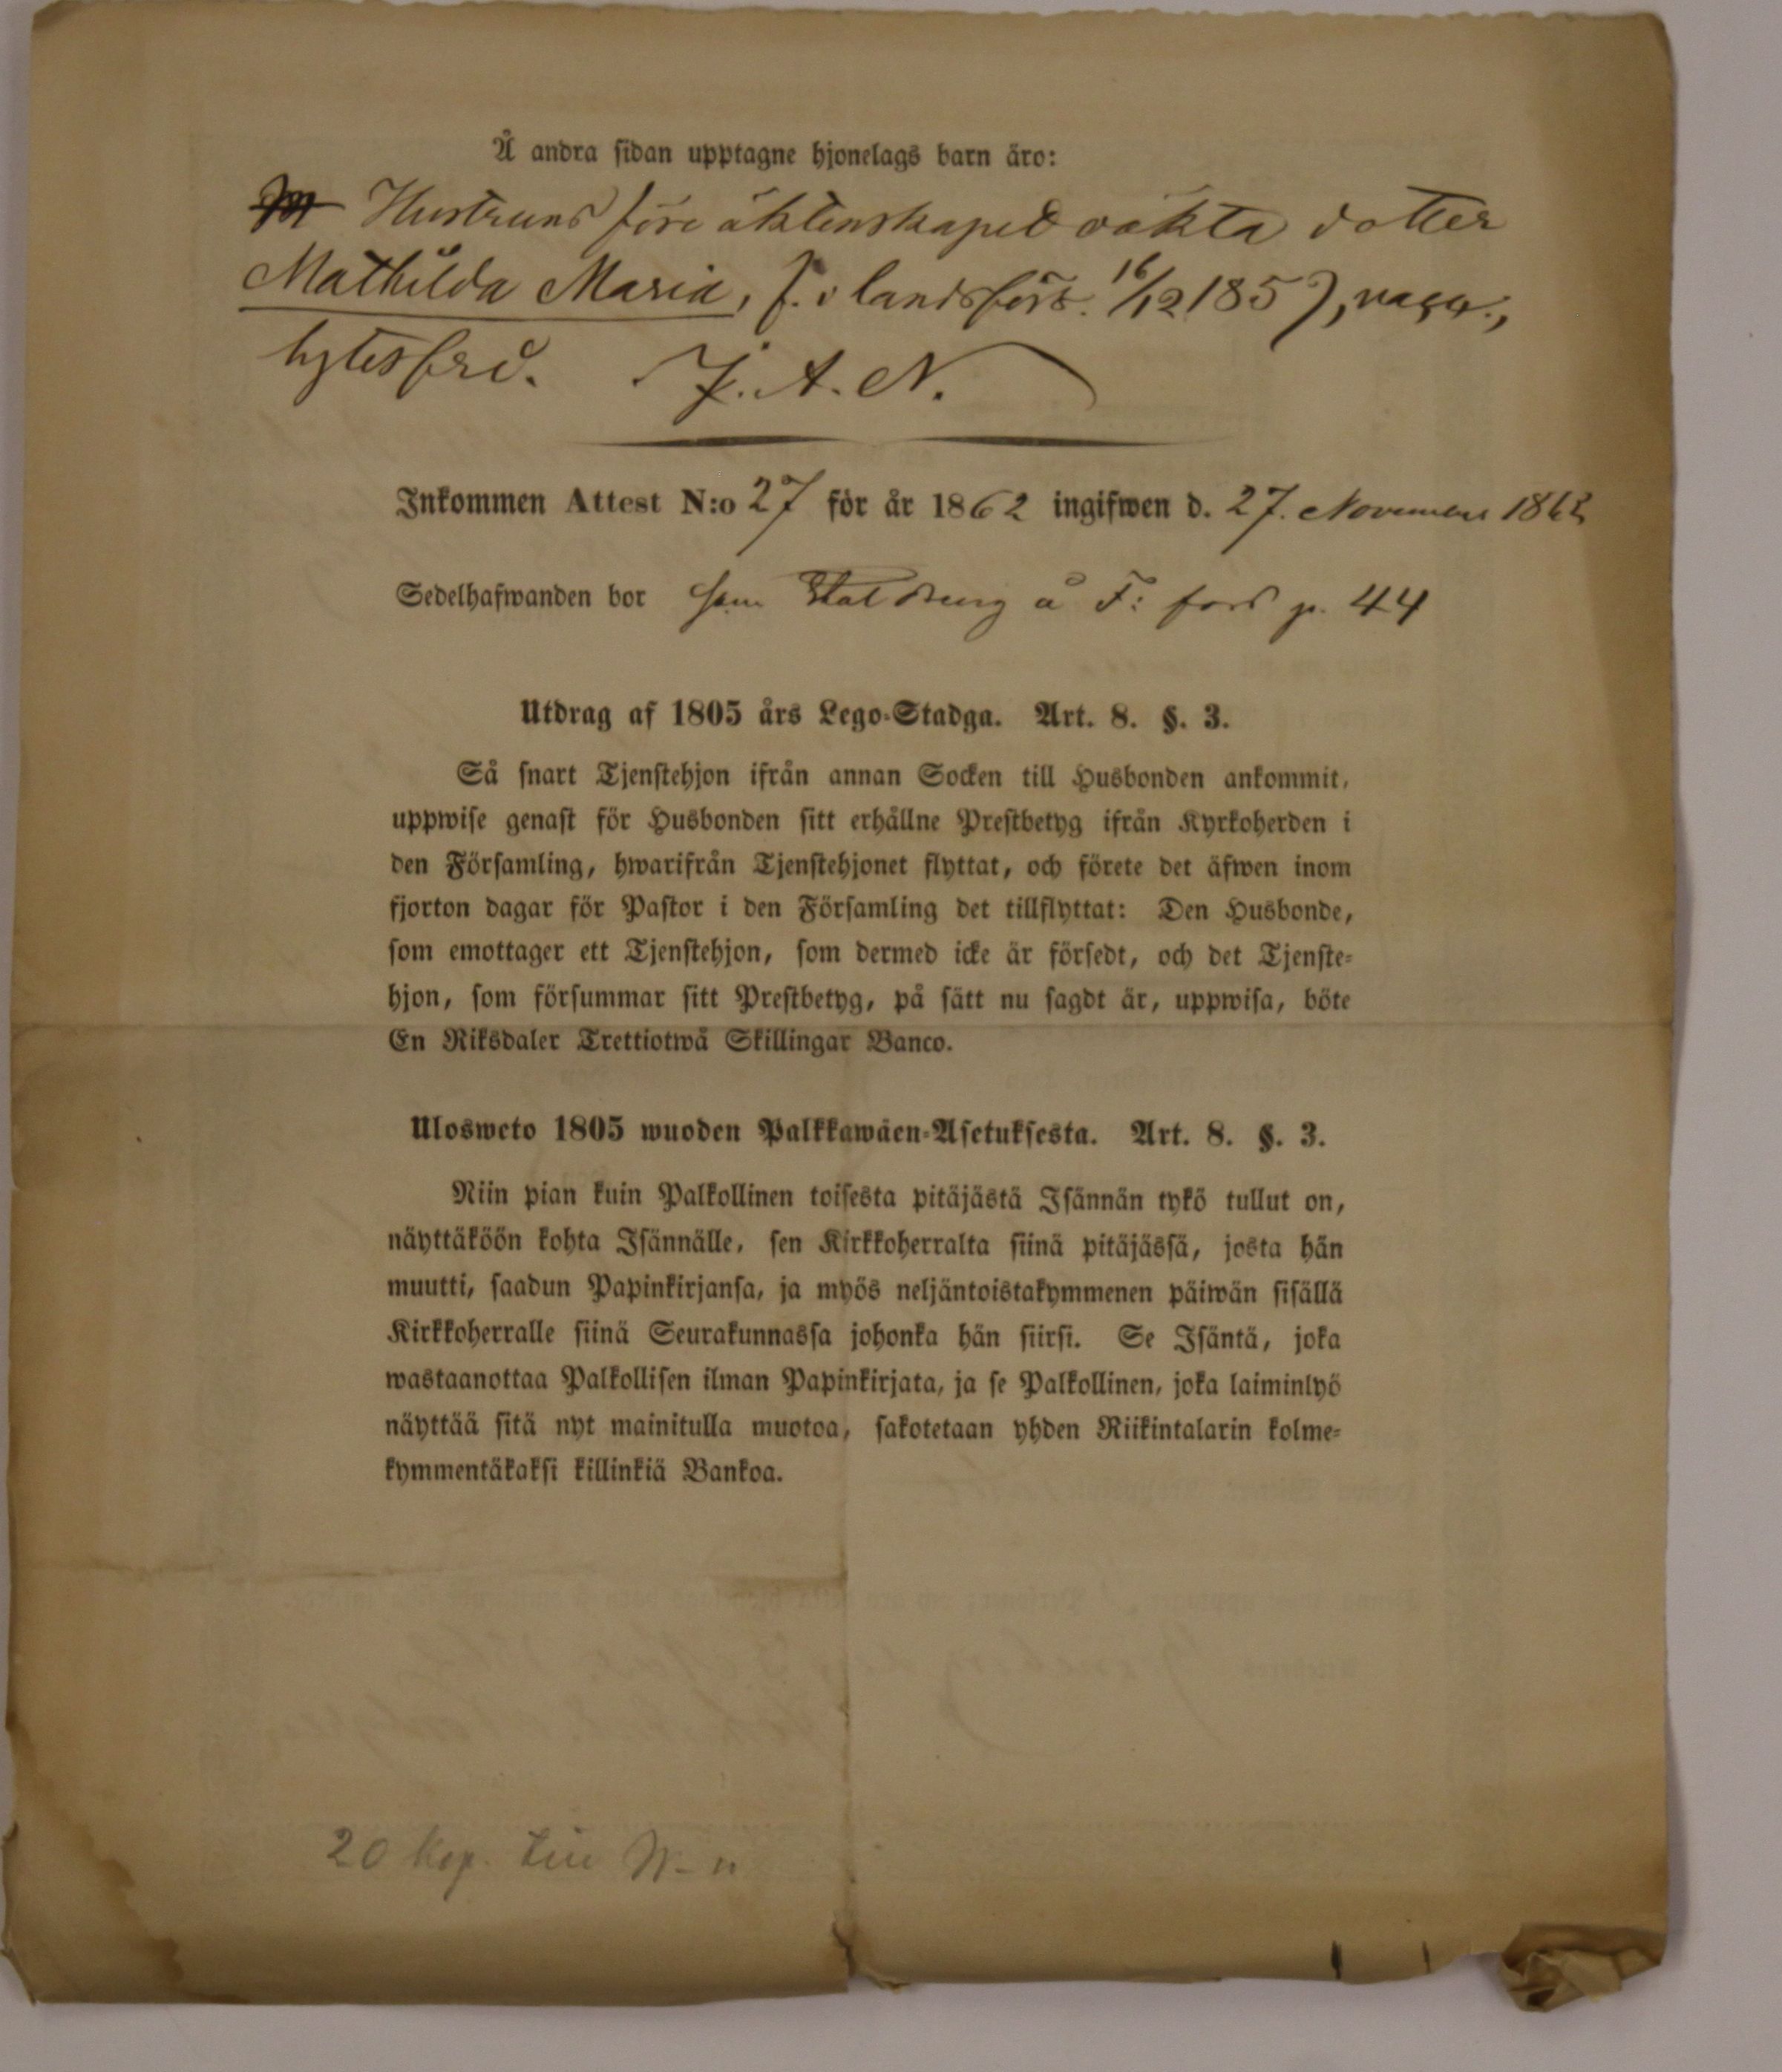 Å andra sidan upptagne hjonelags barn äro:
Hustruns före äktenskapet oäkta dotter
Mathilda Maria, f. i landsförs. 16/12 1857, vacc.,
lytesfri. J. A. N.
Inkommen Attest N:o 27 för år 1862 ingifwen d. 27. November 1862
Sedelhafwanden bor som Staldreng å F: fors p. 44
Utdrag af 1805 års Lego-Stadga. Art. 8. §. 3.
Så snart Tjenstehjon ifrån annan Socken till Husbonden ankommit,
uppwise genast för Husbonden sitt erhållne Prestbetyg ifrån Kyrkoherden i
den Församling, hwarifrån Tjenstehjonet flyttat, och förete det äfwen inom
fjorton dagar för Pastor i den Församling det tillflyttat: Den Husbonde,
som emottager ett Tjenstehjon, som dermed icke är försedt, och det Tjenste-
hjon, som försummar sitt Prestbetyg, på sätt nu sagdt är, uppwisa, böte
En Riksdaler Trettiotwå Skillingar Banco.
Ulosweto 1805 wuoden Palkkawäen-Asetuksesta. Art. 8. §. 3.
Niin pian kuin Palkollinen toisesta pitäjästä Isännän tykö tullut on,
näyttäköön kohta Isännälle, sen Kirkkoherralta siinä pitäjässä, josta hän
muutti, saadun Papinkirjansa, ja myös neljäntoistakymmenen päiwän sisällä
Kirkkoherralle siinä Seurakunnassa johonka hän siirsi. Se Isäntä, joka
wastaanottaa Palkollisen ilman Papinkirjata, ja se Palkollinen, joka laiminlyö
näyttää sitä nyt mainitulla muotoa, sakotetaan yhden Riikintalarin kolme-
kymmentäkaksi killinkiä Bankoa.
20 kop.